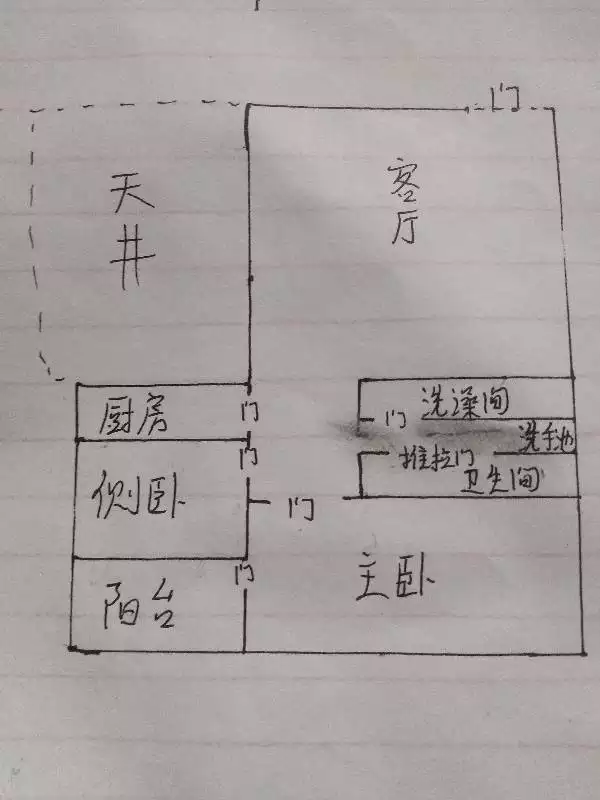 门
天井
客厅
厨房
门
门
洗澡间
洗手池
门
推拉门
卫生间
侧卧
门
主卧
门
阳台